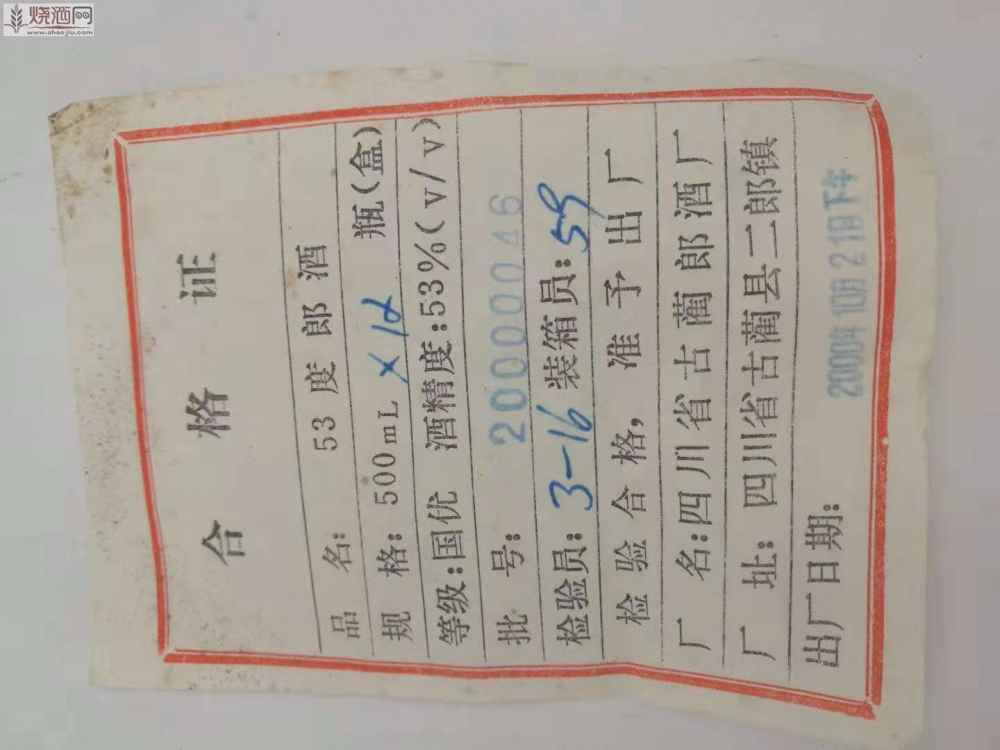 烧酒网
www.shaojiu.com
合格证
品名: 53度郎酒
规格: 500mL ×12 瓶(盒)
等级:国优 酒精度:53%(v/v)
批号: 20000046
检验员: 3-16 装箱员: 59
检验合格, 准予出厂
厂名:四川省古蔺郎酒厂
厂址: 四川省古蔺县二郎镇
出厂日期: 2000年10月21日下午